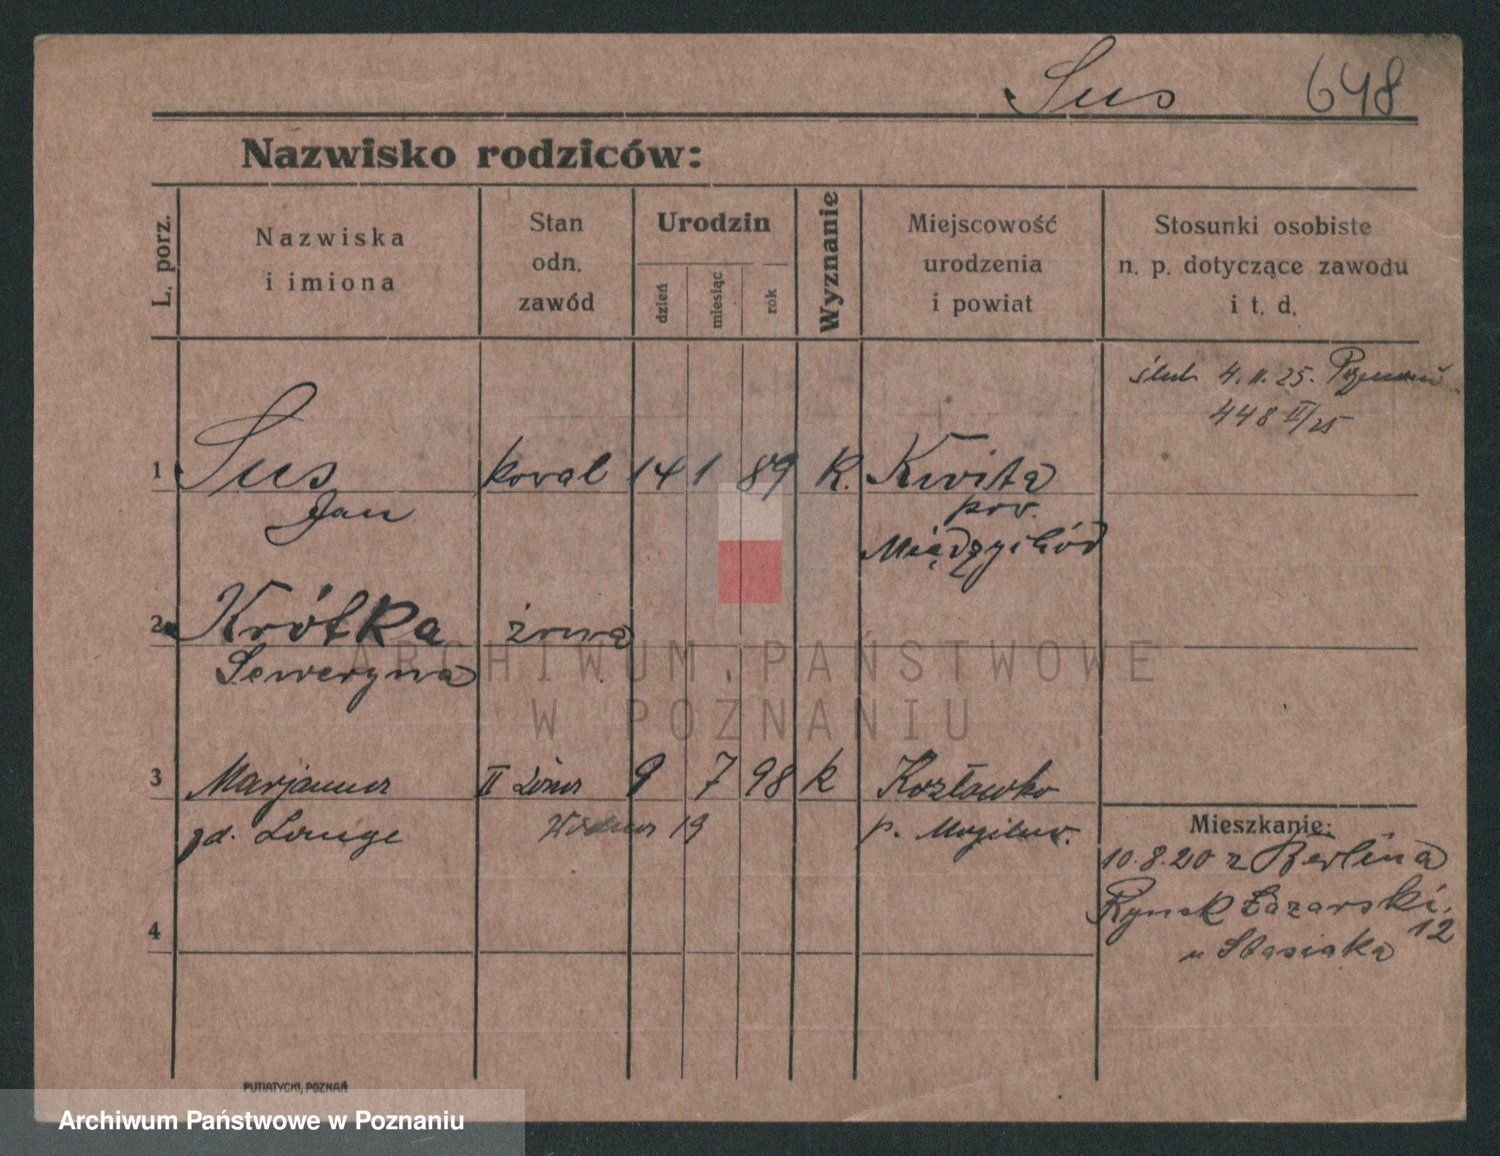 Sus 648
Nazwisko rodziców:
L. porz.
Nazwiska
i imiona
Stan
odn.
zawód
Urodzin
dzień
miesiąc
rok
Wyznanie
Miejscowość
urodzenia
i powiat
Stosunki osobiste
n. p. dotyczące zawodu
i t. d.
ślub 4.11.25. Poznań
448 II/25
1 Sus koval 14 1 89 K. Kwita
Jan pow.
Międzychód
2 Krótka żona
Seweryna
3 Marjanna II żona 9 7 98 k Kozłowko
zd. Lange Wodna 19 p. Mogilno.
Mieszkanie:
10.8.20 z Berlina
Rynek Łazarski.
12
u Stasiaka
4
PUTIATYCKI, POZNAŃ
ARCHIWUM PAŃSTWOWE
W POZNANIU
Archiwum Państwowe w Poznaniu